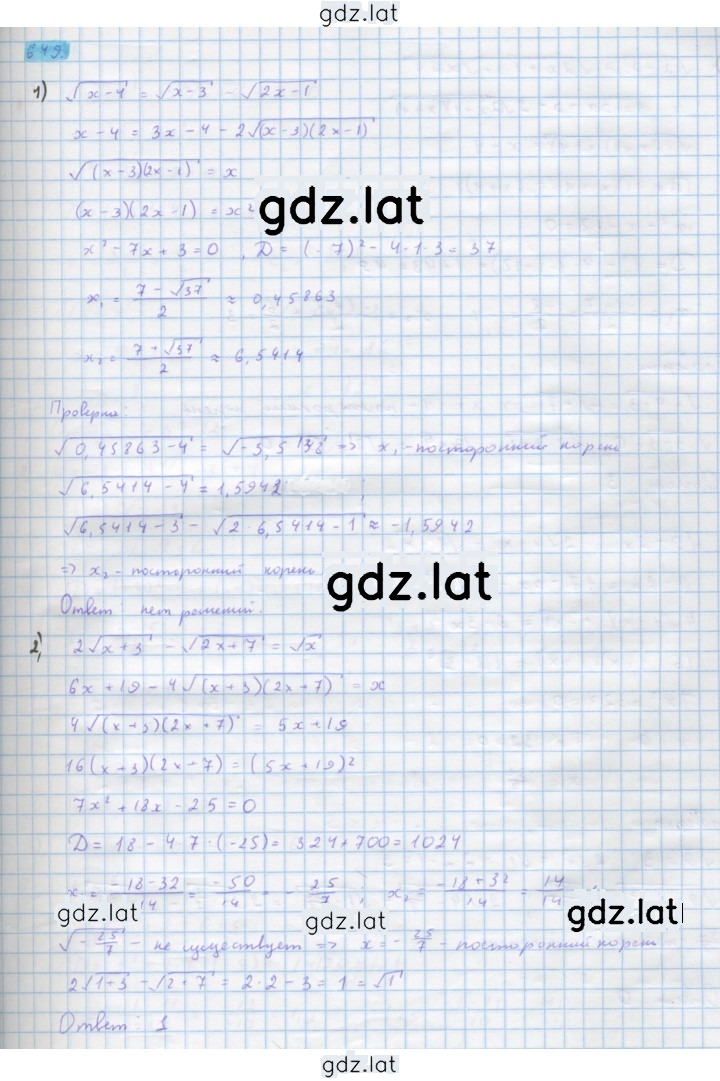 gdz.lat
649.
1) √(x-4) = √(x-3) - √(2x-1)
x-4 = 3x-4-2√((x-3)(2x-1))
√((x-3)(2x-1)) = x
gdz.lat
(x-3)(2x-1) = x²
x² - 7x + 3 = 0 , D = (-7)² - 4·1·3 = 37
x₁ = (7-√37)/2 ≈ 0,45863
x₂ = (7+√37)/2 ≈ 6,5414
Проверка:
√(0,45863-4) = √(-3,5 138) => x₁ - посторонний корень
√(6,5414-4) = 1,5942 ;
√(6,5414-3) - √(2·6,5414-1) ≈ -1,5942
=> x₂ - посторонний корень
gdz.lat
Ответ нет решений.
2) 2√(x+3) - √(2x+7) = √x
6x+19-4√((x+3)(2x+7)) = x
4√((x+3)(2x+7)) = 5x+19
16(x+3)(2x+7) = (5x+19)²
7x² + 18x - 25 = 0
D = 18 - 4·7·(-25) = 324+700 = 1024
x₁ = (-18-32)/14 = -50/14 = -25/7 ; x₂ = (-18+32)/14 = 14/14
gdz.lat
gdz.lat
√(-25/7) - не существует => x = -25/7 - посторонний корень
2√(1+3) - √(2+7) = 2·2-3 = 1 = √1
Ответ: 1
gdz.lat